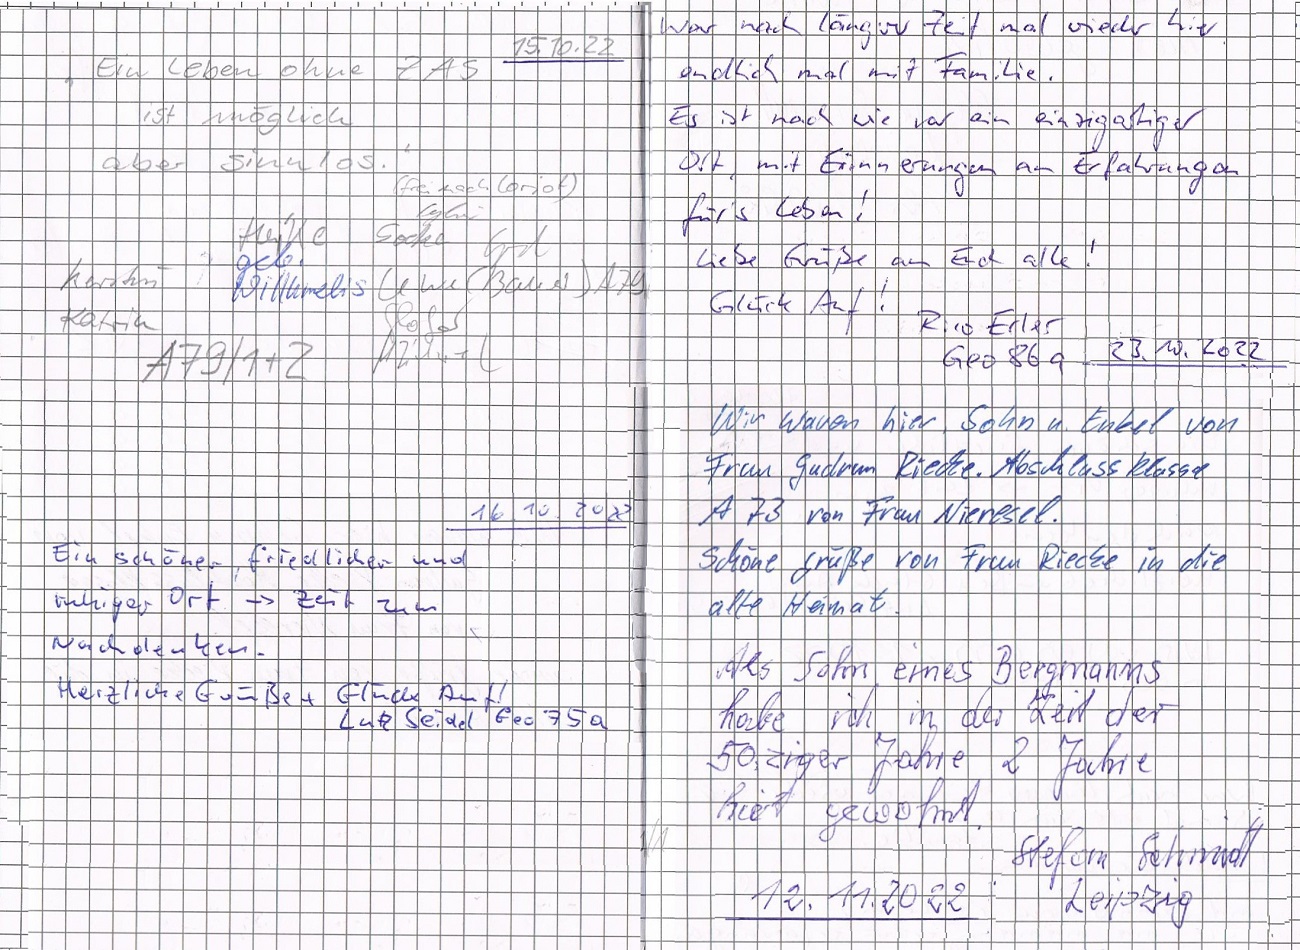 15.10.22
Ein Leben ohne ZAS
ist möglich
aber sinnlos.!
(frei nach Loriot)
Heike
geb.
Kerstin Willumeits (Bauer) A79
Katrin
A79/1+2
16.10.2022
Ein schöner, friedlicher und
ruhiger Ort → Zeit zum
Nachdenken.
Herzliche Grüße + Glück Auf!
Lutz Seidel Geo 75a
War nach länger Zeit mal wieder hier
endlich mal mit Familie.
Es ist nach wie vor ein einzigartiger
Ort, mit Erinnerungen an Erfahrungen
für's Leben!
Liebe Grüße an Euch alle!
Glück Auf!
Rico Erler
Geo 86a 23.10.2022
Wir waren hier, Sohn u. Enkel von
Frau Gudrun Riecke. Abschlussklasse
A 73 von Frau Nieresel.
Schöne grüße von Frau Riecke in die
alte Heimat.
Als Sohn eines Bergmanns
habe ich in der Zeit der
50.ziger Jahre 2 Jahre
hier gewohnt.
Stefan Schmidt
12.11.2022 Leipzig